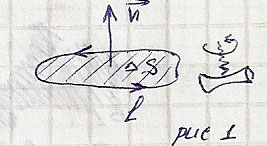 n
ΔS
l
рис 1